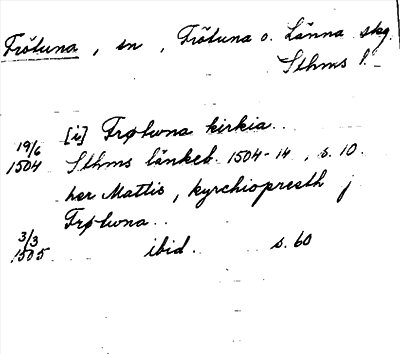 Frötuna, sn, Frötuna o. Länna skg
Sthms l.
[i] Frøtwna kirkia..
19/6 1504 Sthms tänkeb. 1504-14, s. 10.
her Mattis, kyrchiopresth j
Frøtwna..
3/3 1505 ibid. s. 60